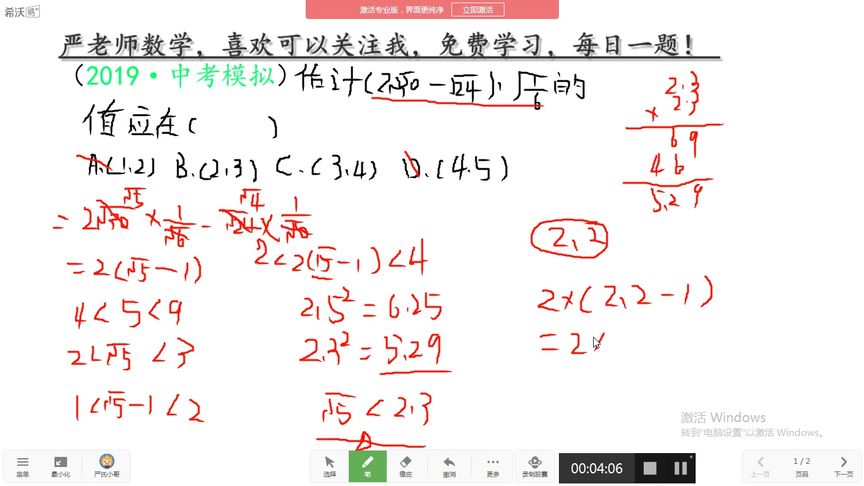 希沃易+
激活专业版，界面更纯净 立即激活
严老师数学，喜欢可以关注我，免费学习，每日一题！
（2019·中考模拟）估计(2√30-√24)·√1/6的
值应在( )
A.(1.2) B.(2.3) C.(3.4) D.(4.5)
2.3
× 2.3
69
46
5.29
= 2√30 √5 × 1/√6 - √24 √4 × 1/√6
2.2
= 2(√5-1) 2<2(√5-1)<4
2×(2.2-1)
4<5<9 2.5²=6.25
2<√5<3 2.3²=5.29
=2×
1<√5-1<2 √5<2.3
激活 Windows
转到"电脑设置"以激活 Windows。
菜单 最小化 严氏小哥 选择 笔 橡皮 撤消 更多 录制胶囊 00:04:06 上一页 1/2 页码 下一页